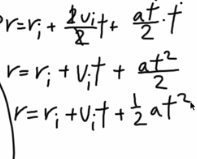 r=rᵢ+2vᵢt/2+at/2·t
r=rᵢ+vᵢt+at²/2
r=rᵢ+vᵢt+½at²